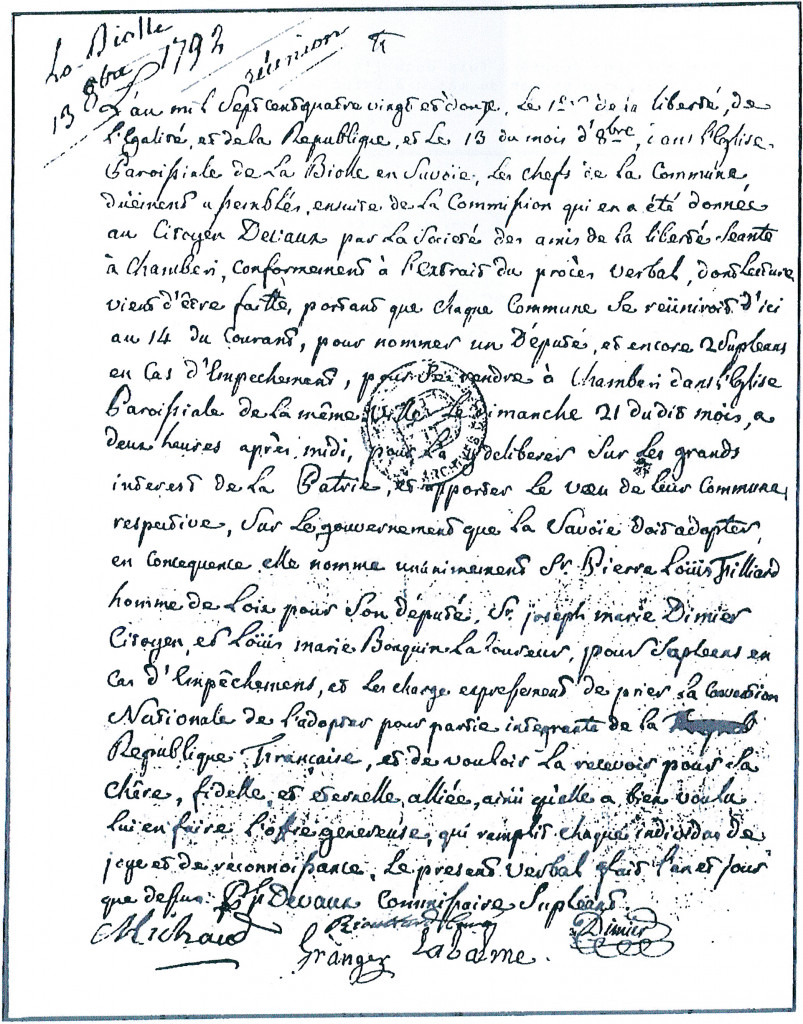 La Biolle
13 8bre 1792
réunion
L'an mil Sept cent quatre vingt et douze, Le 1er de la liberté, de
l'Egalité, et de la Republique, et Le 13 du mois d'8bre, dans l'Eglise
Paroissiale de La Biolle en Savoie, Les chefs de la Commune
düement assemblés, ensuite de La Commission qui en a été donnée
au Citoyen Devaux par La Societé des amis de la liberté Seante
à Chamberi, conformement à l'Extrait du procès verbal, dont Lecture
vient d'être faitte, portant que chaque Commune Se reüniroit d'ici
au 14 du Courant, pour nommer un Député, et encore 2 Supleans
en Cas d'Empechement, pour Se rendre à Chamberi dans l'Eglise
Paroissiale de la même ville Le Dimanche 21 du dit mois, a
deux heures après midi, pour La y deliberer Sur Les grands
interest de La Patrie, et apporter Le vœu de leur Commune
respective, Sur Le gouvernement que la Savoie doit adopter,
en consequence elle nomme unanimement Sr. Pierre Loüis Filliard
homme de Loix pour Son député, Sr. joseph marie Dimier
Citoyen, et Loüis marie Bouquin La Toureur, pour Supleens en
Cas d'Empêchement, et Les charge expressement de prier la Convention
Nationale de l'adopter pour partie integrante de la
Republique Française, et de vouloir La recevoir pour Sa
chère, fidelle, et eternelle alliée, ainsi qu'elle a bien voulu
Lui en faire l'offre genereuse, qui remplit chaque individu de
joye et de reconnoissance. Le present verbal fait l'an et jour
que dessus. Devaux Commissaire Supleant
Michaud
Dimier
Granger Labalme.